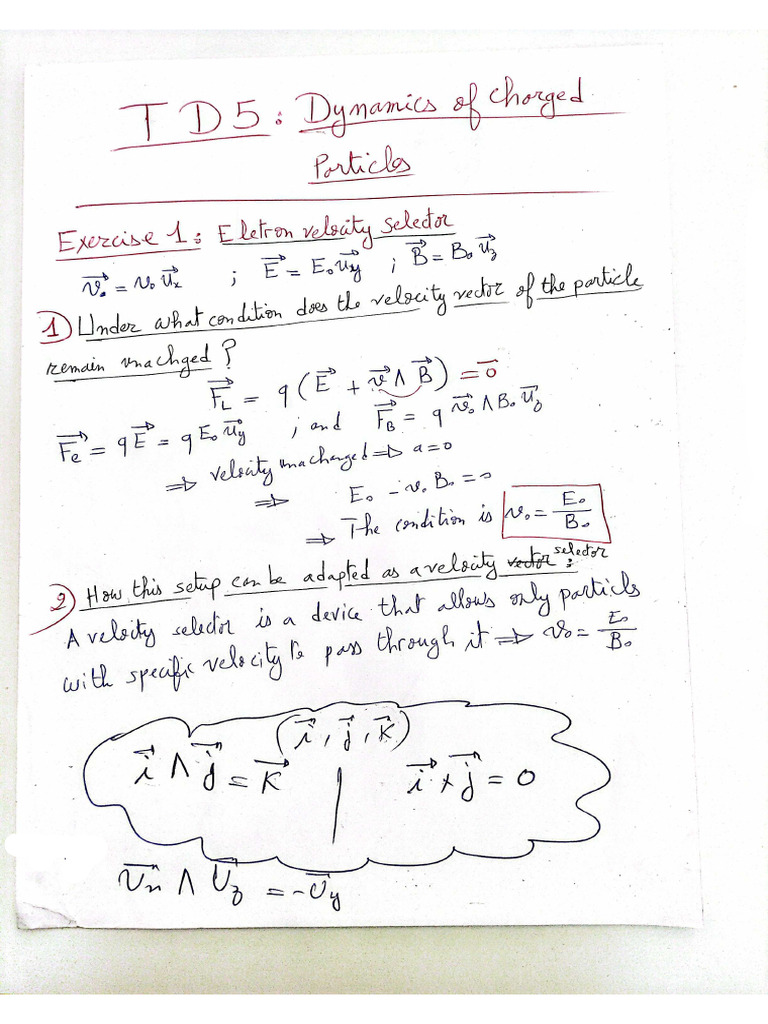 TD5 : Dynamics of charged
Particles
Exercise 1 : Eletron velocity selector
v⃗₀ = v₀ u⃗ₓ ; E⃗ = E₀ u⃗y ; B⃗ = B₀ u⃗z
1) Under what condition does the velocity vector of the particle
remain unachged ?
F⃗L = q (E⃗ + v⃗ ∧ B⃗) = 0⃗
F⃗e = qE⃗ = q E₀ u⃗y ; and F⃗B = q v⃗₀ ∧ B₀ u⃗z
⇒ velocity unachanged ⇒ a = 0
⇒ E₀ - v₀ B₀ = 0
⇒ The condition is v₀ = E₀/B₀
2) How this setup can be adapted as a velocity vector selector :
A velocity selector is a device that allows only particls
with specific velocity to pass through it ⇒ v₀ = E₀/B₀
(i⃗, j⃗, k⃗)
i⃗ ∧ j⃗ = k⃗ | i⃗ × j⃗ = 0
U⃗x ∧ U⃗z = -U⃗y